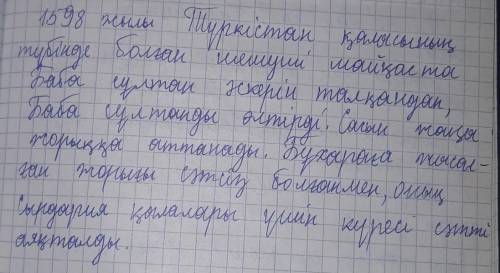 1598 жылы Түркістан қаласының
түбінде болған шешуші майқаста
Баба сұлтан әскерін талқандап,
Баба сұлтанды өлтірді. Сағын жаңа
жорыққа аттанады. Бұхараға жасал-
ған жорығы сәтсіз болғанмен, оның
Сырдария қалалары үшін күресі сәтті
аяқталды.